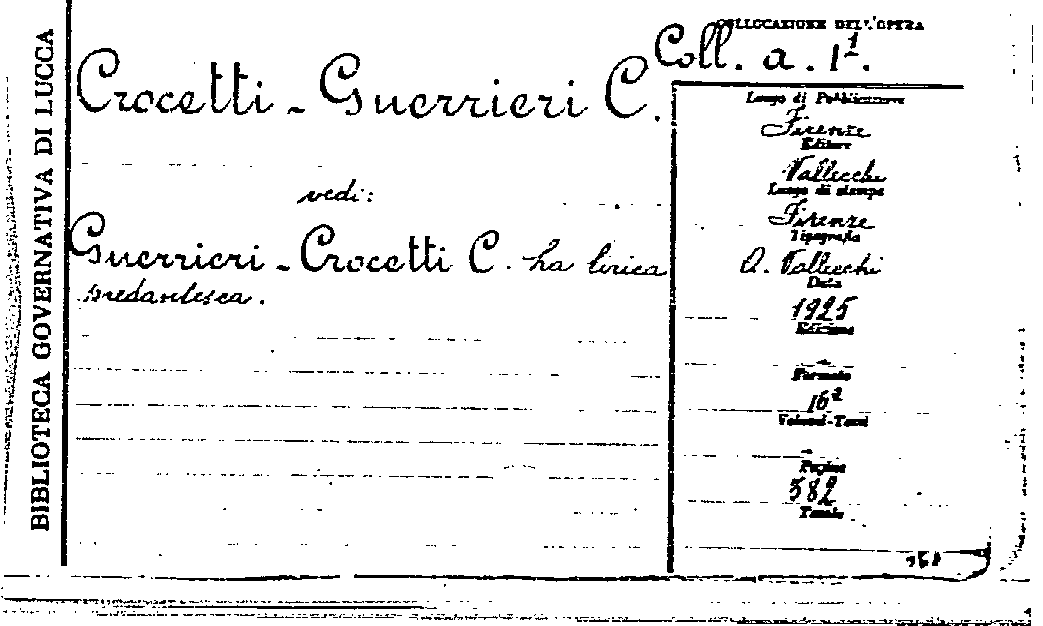 BIBLIOTECA GOVERNATIVA DI LUCCA
COLLOCAZIONE DELL'OPERA
Coll. a. 1¹.
Crocetti - Guerrieri C.
vedi:
Guerrieri - Crocetti C. La lirica
predantesca.
Luogo di Pubblicazione
Firenze
Editore
Vallecchi
Luogo di stampa
Firenze
Tipografia
A. Vallecchi
Data
1925
Edizione
-
Formato
16º
Volumi-Tomi
-
Pagine
582
Tavole